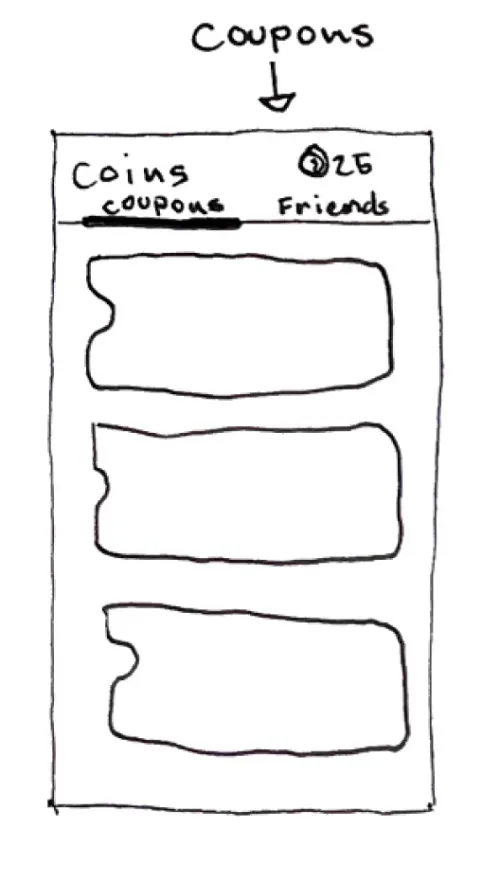 Coupons
Coins 25
coupons Friends